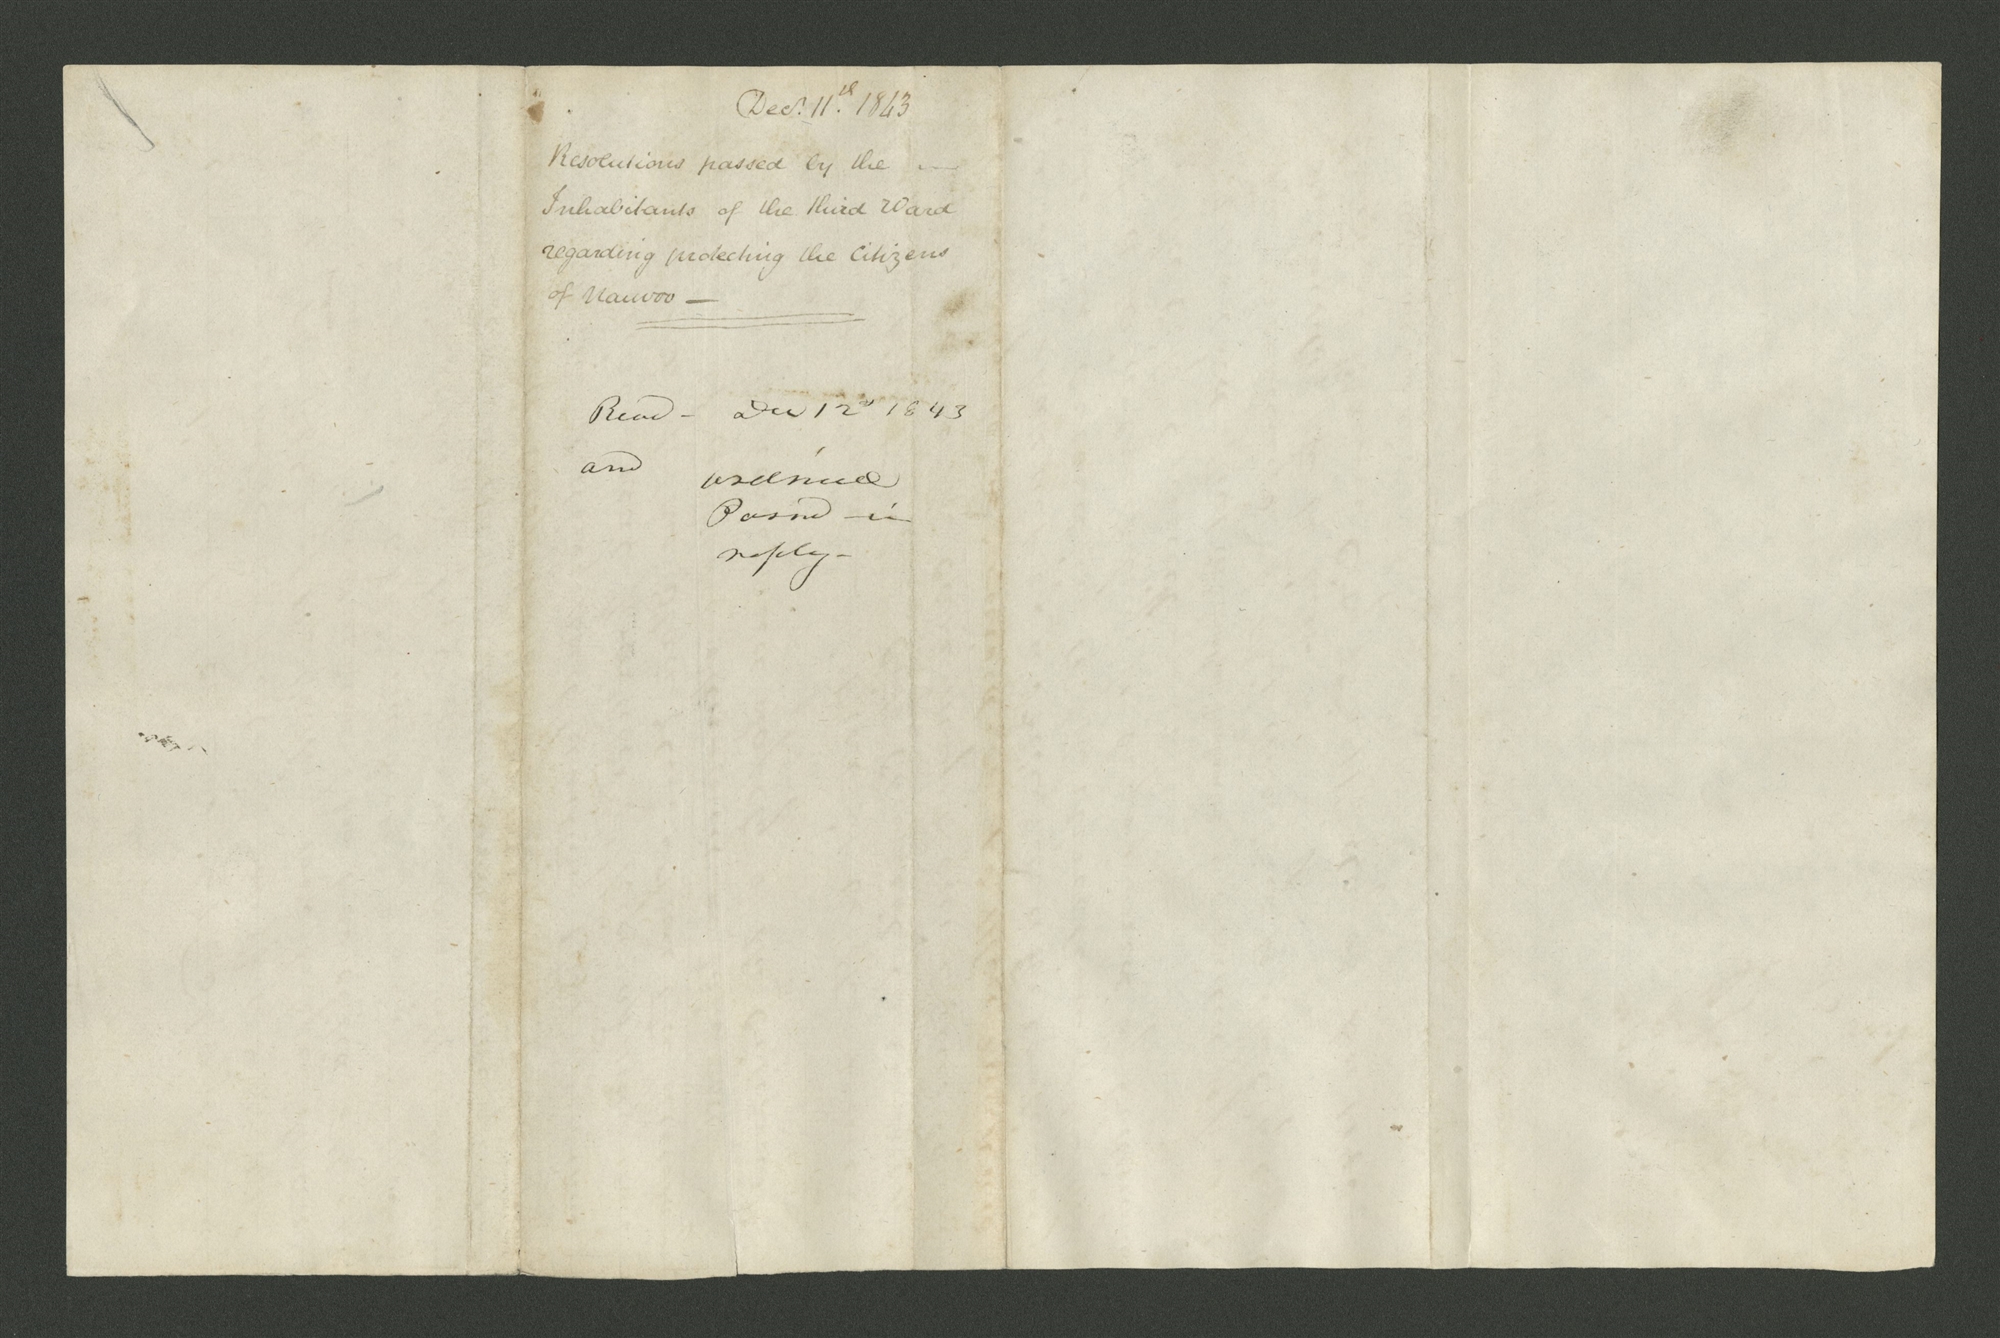 Decr. 11th. 1843
Resolutions passed by the —
Inhabitants of the third Ward
regarding protecting the Citizens
of Nauvoo —
Read - Dec 12d 1843
and
ordinance
Passed — in
reply -